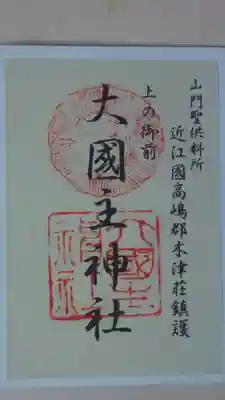 山門聖供料所
近江國高嶋郡木津荘鎮護
上の御前
大國主神社